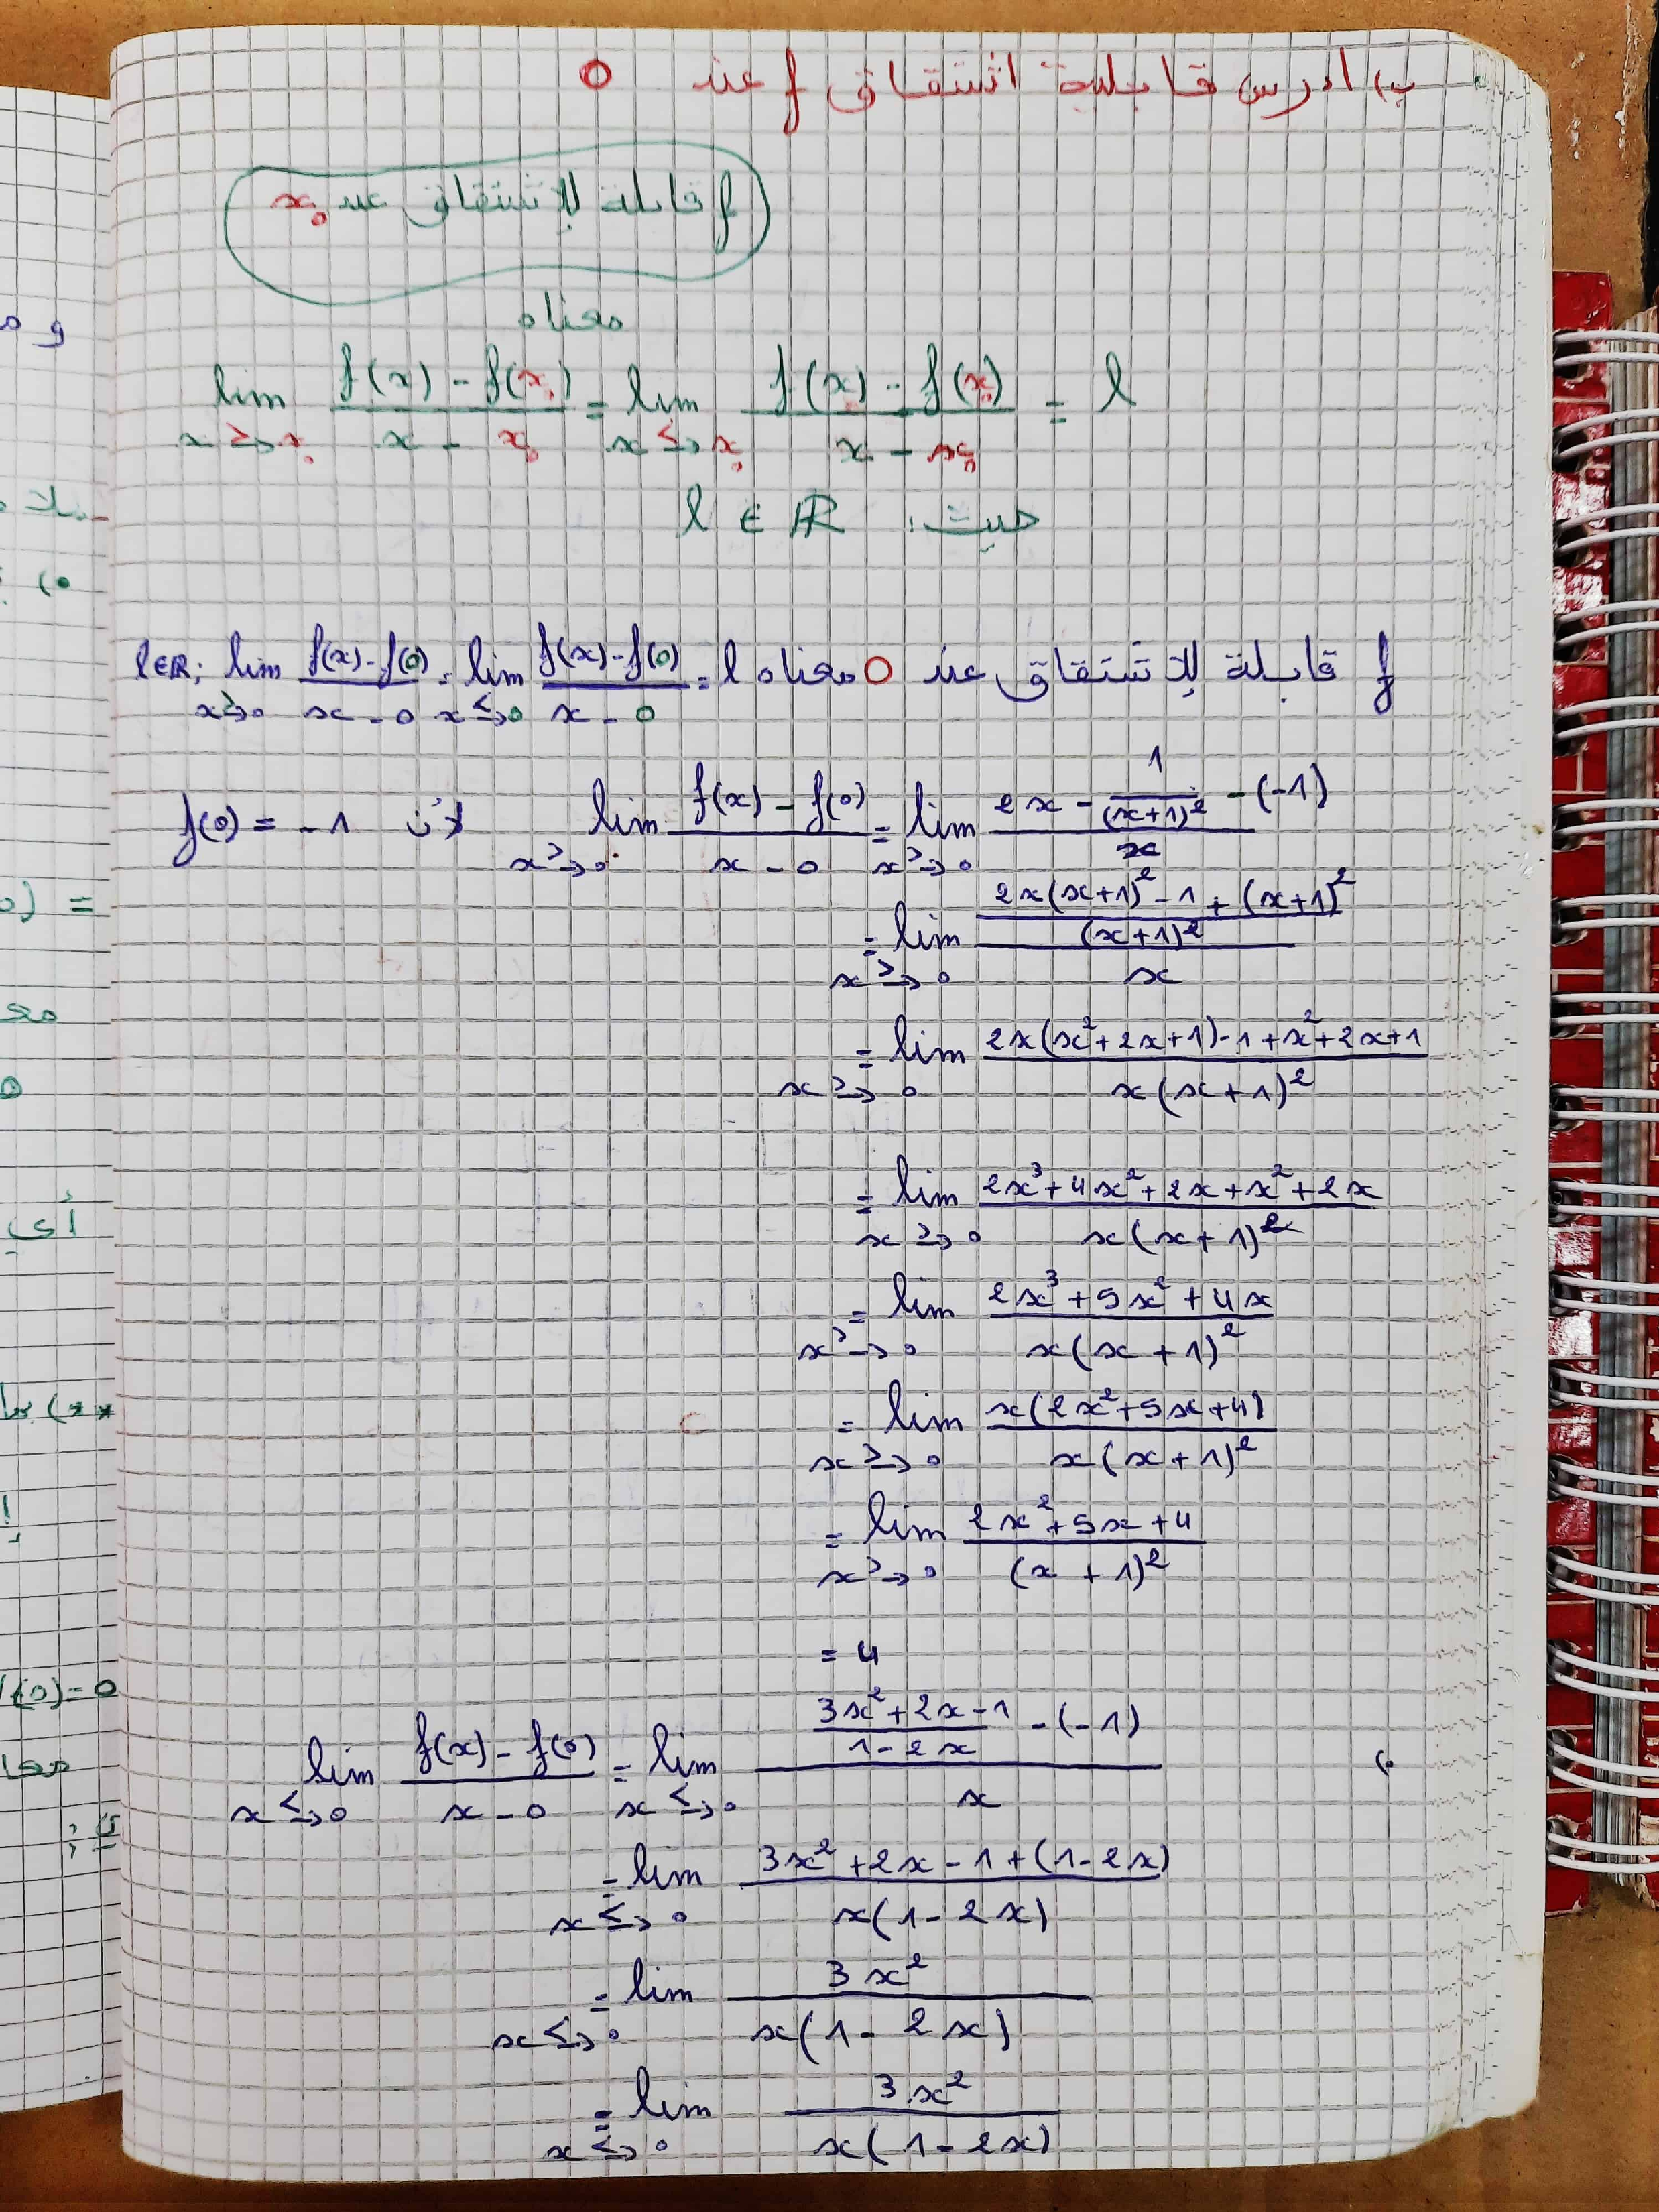 ب) ادرس قابلية اشتقاق f عند 0
f قابلة للاشتقاق عند x₀
معناه
lim_{x→^{>}x₀} (f(x) - f(x₀))/(x - x₀) = lim_{x→^{<}x₀} (f(x) - f(x₀))/(x - x₀) = l
حيث: l ∈ ℝ
f قابلة للاشتقاق عند 0 معناه l∈ℝ; lim_{x→^{>}0} (f(x)-f(0))/(x-0) = lim_{x→^{<}0} (f(x)-f(0))/(x-0) = l
lim_{x→^{>}0} (f(x) - f(0))/(x - 0) = lim_{x→^{>}0} (2x - 1/(x+1)² - (-1))/x لأن f(0) = -1
= lim_{x→^{>}0} ((2x(x+1)² - 1 + (x+1)²)/(x+1)²)/x
= lim_{x→^{>}0} (2x(x²+2x+1)-1+x²+2x+1)/(x(x+1)²)
= lim_{x→^{>}0} (2x³+4x²+2x+x²+2x)/(x(x+1)²)
= lim_{x→^{>}0} (2x³+5x²+4x)/(x(x+1)²)
= lim_{x→^{>}0} (x(2x²+5x+4))/(x(x+1)²)
= lim_{x→^{>}0} (2x²+5x+4)/((x+1)²)
= 4
lim_{x→^{<}0} (f(x) - f(0))/(x - 0) = lim_{x→^{<}0} ((3x²+2x-1)/(1-2x) - (-1))/x
= lim_{x→^{<}0} (3x²+2x-1+(1-2x))/(x(1-2x))
= lim_{x→^{<}0} 3x²/(x(1-2x))
= lim_{x→^{<}0} 3x²/(x(1-2x))